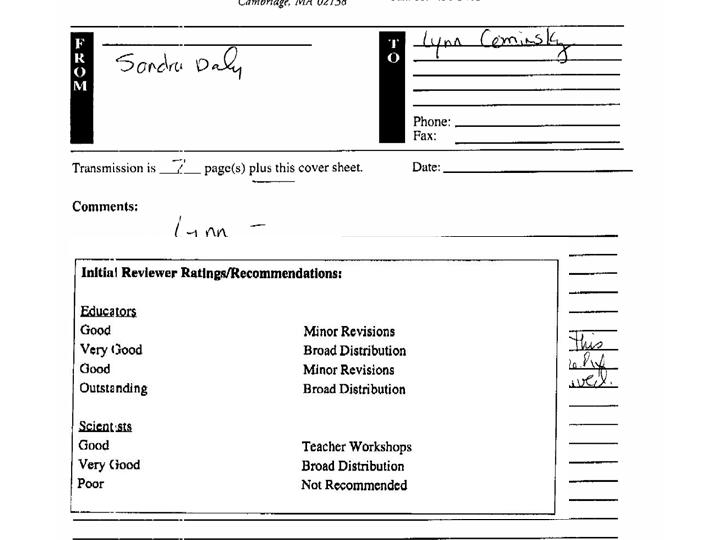 Cambridge, MA 02138
FROM
Sandra Daly
TO
Lynn Cominsky
Phone:
Fax:
Transmission is 7 page(s) plus this cover sheet.
Date:
Comments:
Lynn -
Initial Reviewer Ratings/Recommendations:
Educators
Good Minor Revisions
Very Good Broad Distribution
Good Minor Revisions
Outstanding Broad Distribution
this
Scientists
Good Teacher Workshops
Very Good Broad Distribution
Poor Not Recommended